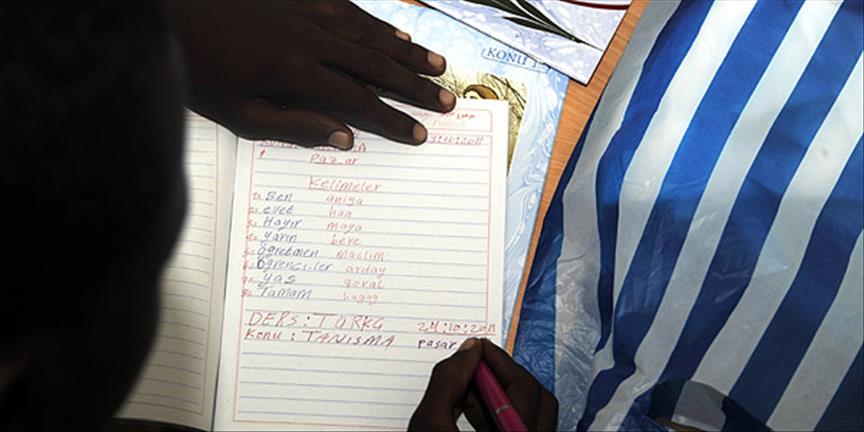 KONU 1
Pazar
Kelimeler
1. Ben aniga
2. evet haa
3. Hayır maya
4. yarın bere
5. öğretmen maclim
6. öğrenciler arday
7. yas
8. Tamam hagag
DERS: TÜRKG 24:10:2011
Konu: TANISMA pasar